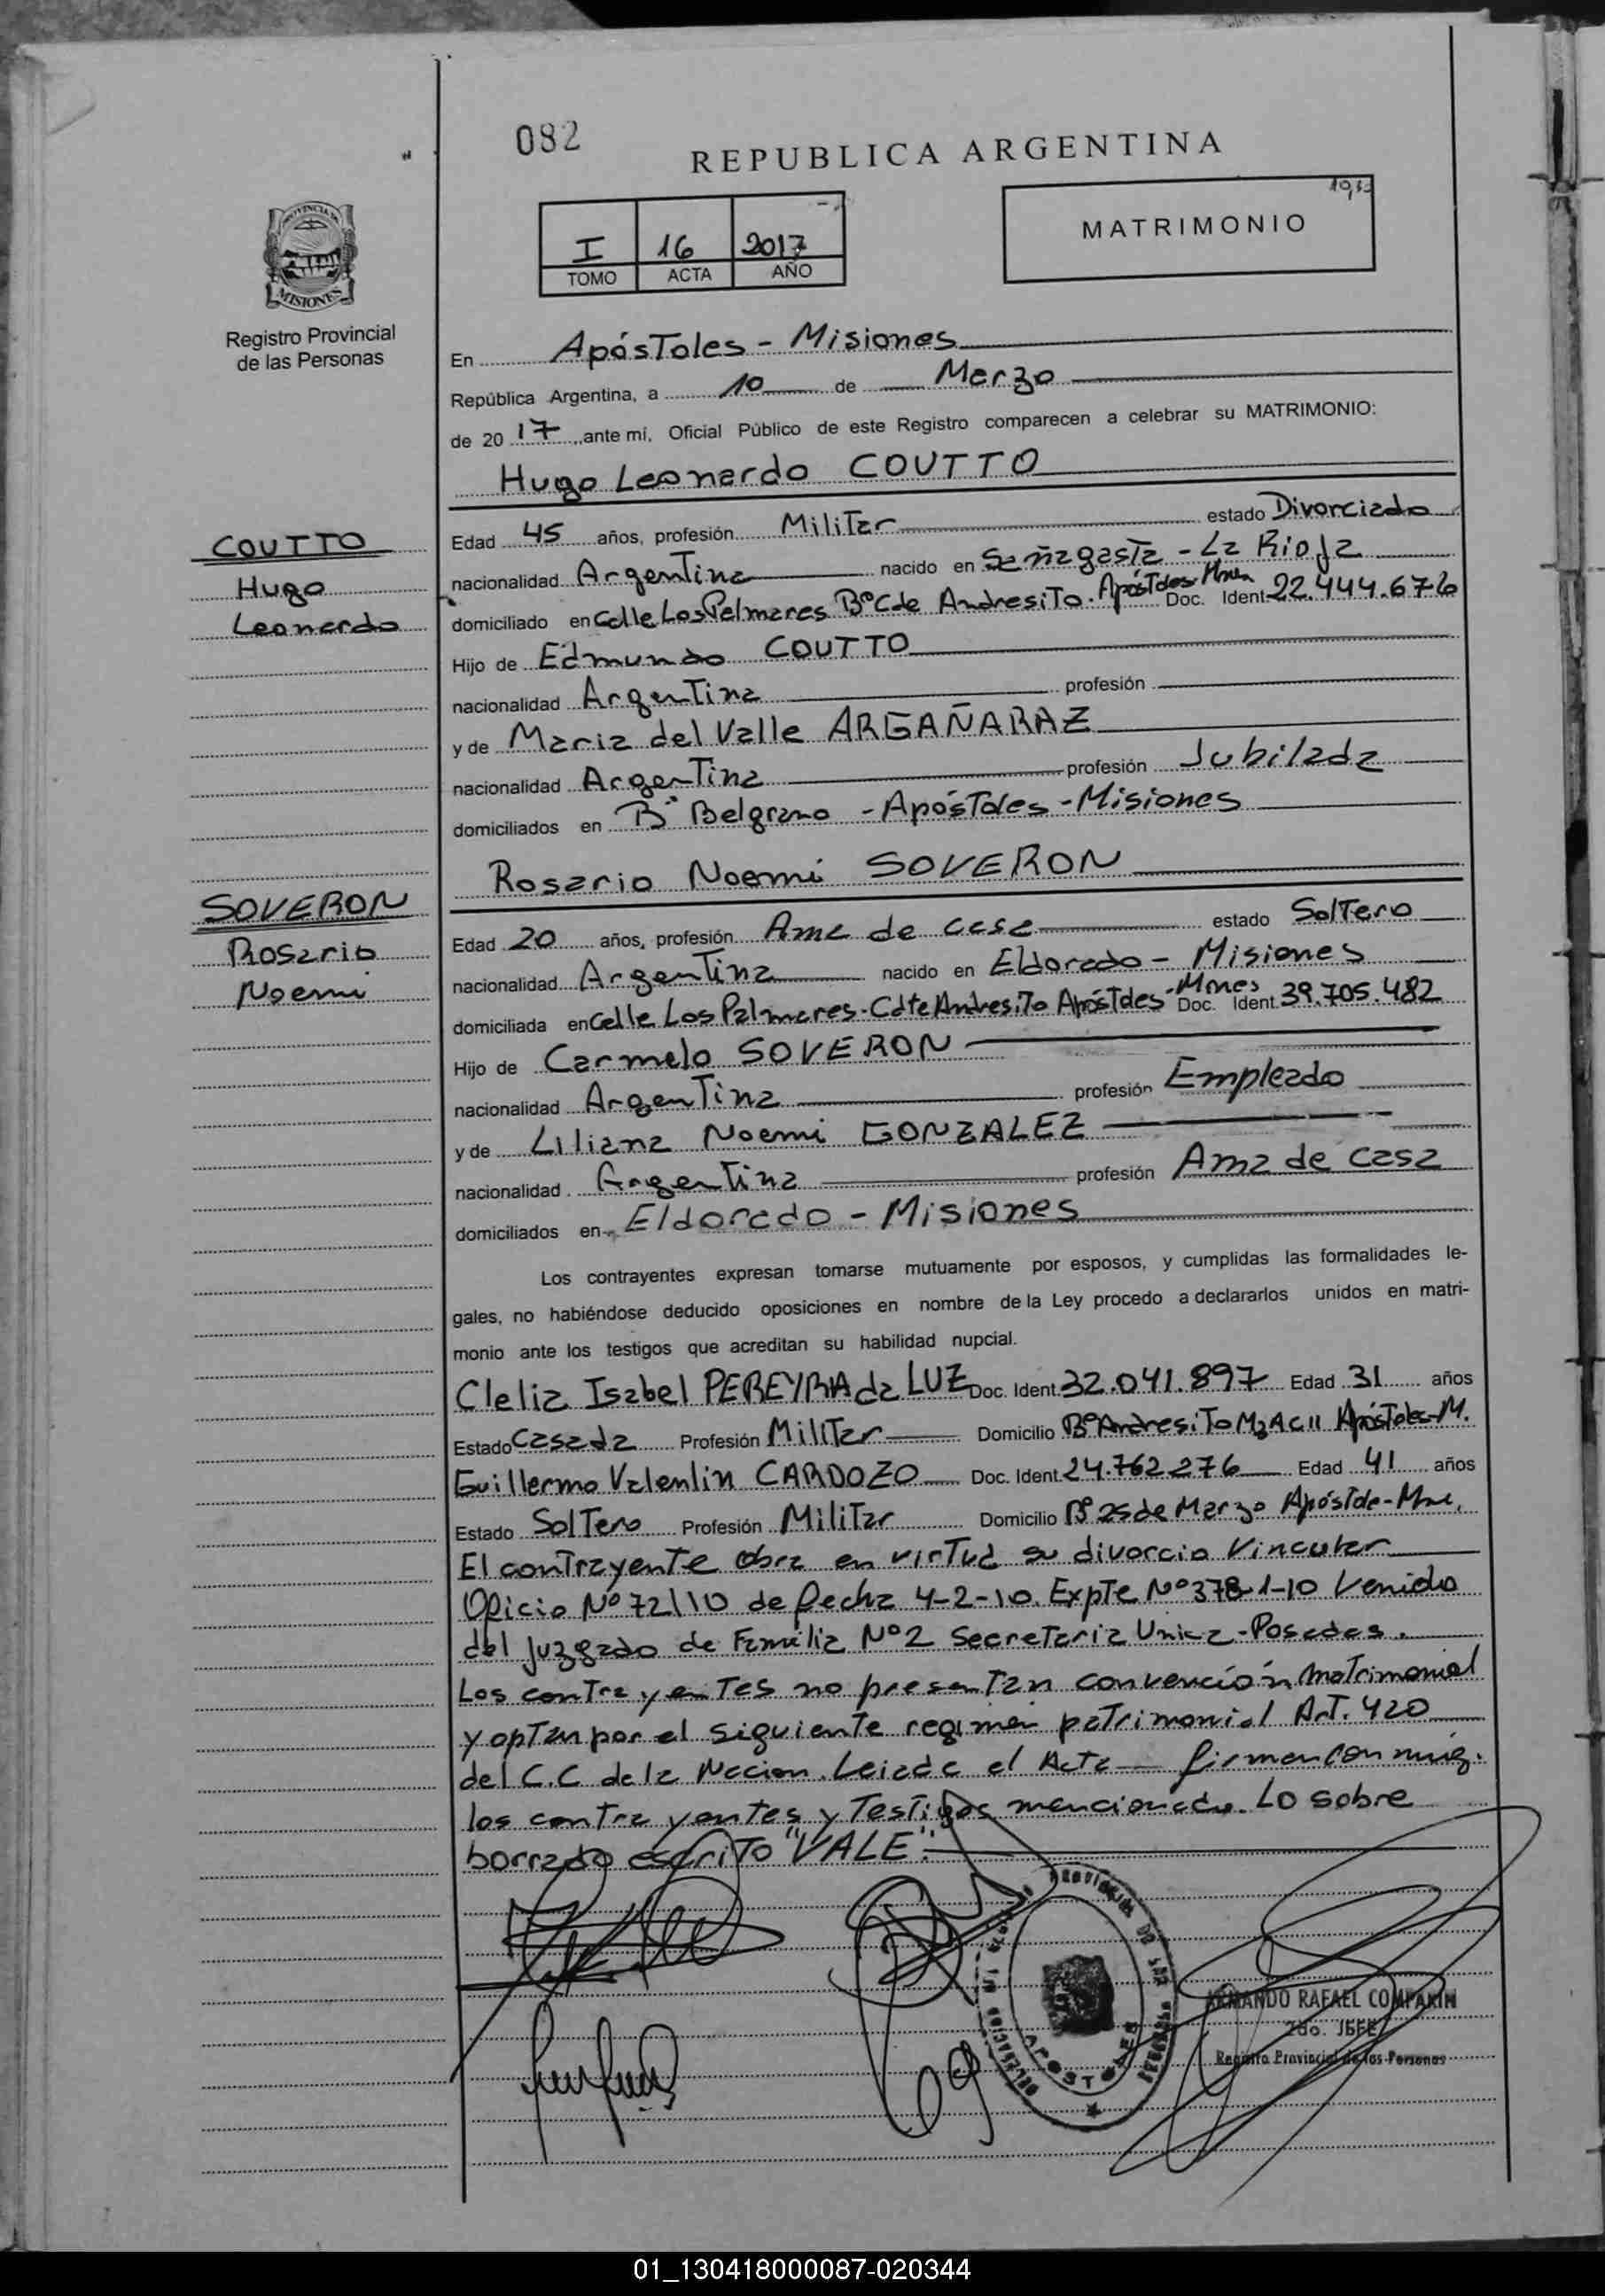 082
REPUBLICA ARGENTINA
PROVINCIA DE
MISIONES
Registro Provincial
de las Personas
I 16 2017
TOMO ACTA AÑO
MATRIMONIO
En Apóstoles - Misiones
República Argentina, a 10 de Marzo
de 20 17, ante mí, Oficial Público de este Registro comparecen a celebrar su MATRIMONIO:
Hugo Leonardo COUTTO
COUTTO
Hugo
Leonardo
Edad 45 años, profesión Militar estado Divorciado
nacionalidad Argentina nacido en Sañagasta - La Rioja
domiciliado en Calle Los Palmares B° Cde Andresito. Apóstoles Mnes Doc. Ident. 22.444.676
Hijo de Edmundo COUTTO
nacionalidad Argentina profesión
y de Maria del Valle ARGAÑARAZ
nacionalidad Argentina profesión Jubilada
domiciliados en B° Belgrano - Apóstoles - Misiones
Rosario Noemi SOVERON
SOVERON
Rosario
Noemi
Edad 20 años, profesión Ama de casa estado Soltero
nacionalidad Argentina nacido en Eldorado - Misiones
domiciliada en Calle Los Palmares - Cdte Andresito Apóstoles - Mnes Doc. Ident. 39.705.482
Hijo de Carmelo SOVERON
nacionalidad Argentina profesión Empleado
y de Liliana Noemi GONZALEZ
nacionalidad Argentina profesión Ama de casa
domiciliados en Eldorado - Misiones
Los contrayentes expresan tomarse mutuamente por esposos, y cumplidas las formalidades le-
gales, no habiéndose deducido oposiciones en nombre de la Ley procedo a declararlos unidos en matri-
monio ante los testigos que acreditan su habilidad nupcial.
Clelia Isabel PEREYRA da LUZ Doc. Ident. 32.041.897 Edad 31 años
Estado Casada Profesión Militar Domicilio B° Andresito Mz A C 11 Apóstoles - M.
Guillermo Valentin CARDOZO Doc. Ident. 24.762.276 Edad 41 años
Estado Soltero Profesión Militar Domicilio B° 25 de Marzo Apóstole - Mne.
El contrayente obra en virtud su divorcio Vincular
Oficio N° 72/10 de fecha 4-2-10. Expte N° 378-1-10 Venido
del Juzgado de Familia N° 2 Secretaria Unica - Posadas.
Los contrayentes no presentan convención matrimonial
y optan por el siguiente regimen patrimonial Art. 420
del C.C de la Nacion. Leida el Acta firman conmigo
los contrayentes y Testigos mencionado. Lo sobre
borrado escrito "VALE".
APOSTOLES
ARMANDO RAFAEL COMPARIN
2do. JEFE
Registro Provincial de las Personas
01_130418000087-020344